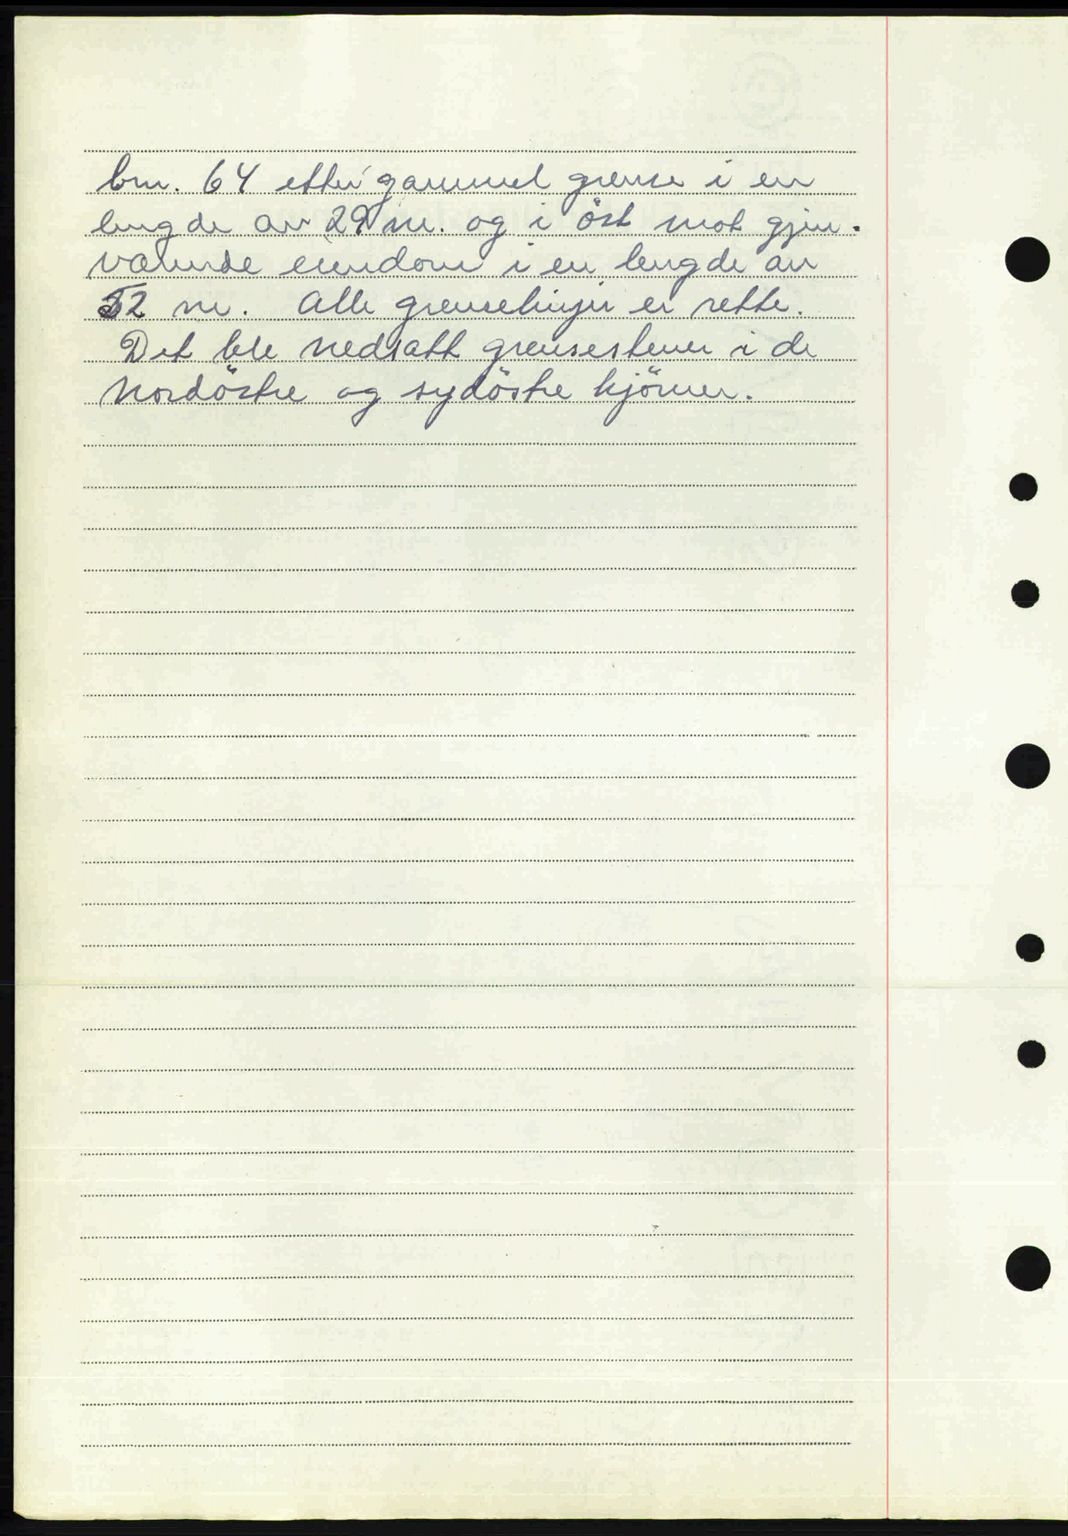 brn. 64 etter gammel grense i en
lengde av 29 m. og i öst mot gjen-
værende eiendom i en lengde av
52 m. Alle grenselinjer er rette.
Det ble nedsatt grensestener i de
nordöstre og sydöstre hjörner.